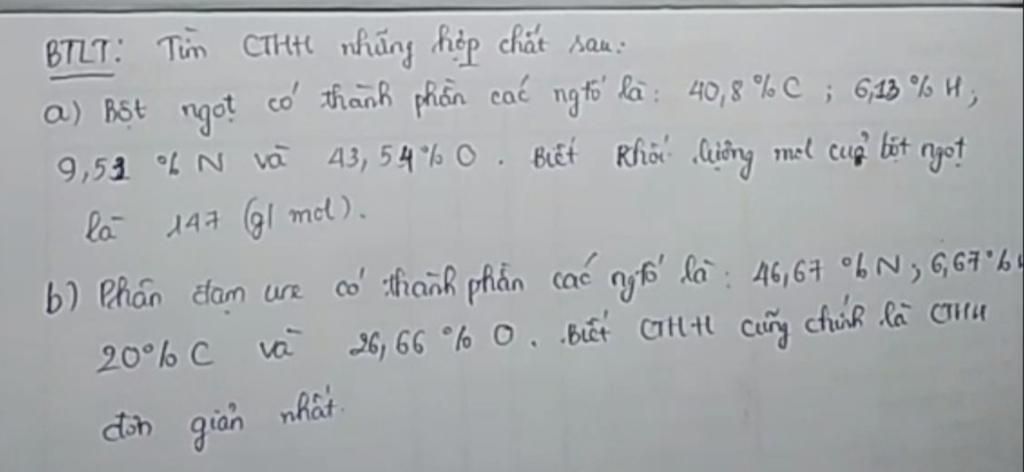 BTLT: Tìm CTHH những hợp chất sau:
a) Bột ngọt có thành phần các ngtố là: 40,8 % C ; 6,13 % H ;
9,51 % N và 43,54 % O . Biết khối lượng mol của bột ngọt
là 147 (g/ mol).
b) Phân đạm ure có thành phần các ngtố là : 46,67 % N ; 6,67 %
20% C và 26,66 % O . Biết CTHH cũng chính là CTHH
đơn giản nhất.